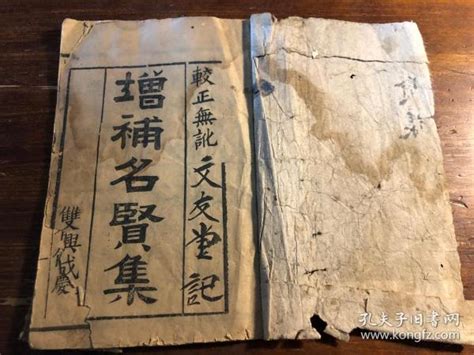 較正無訛 文友堂記
增補名賢集
雙興成慶
孔夫子旧书网
www.kongfz.com